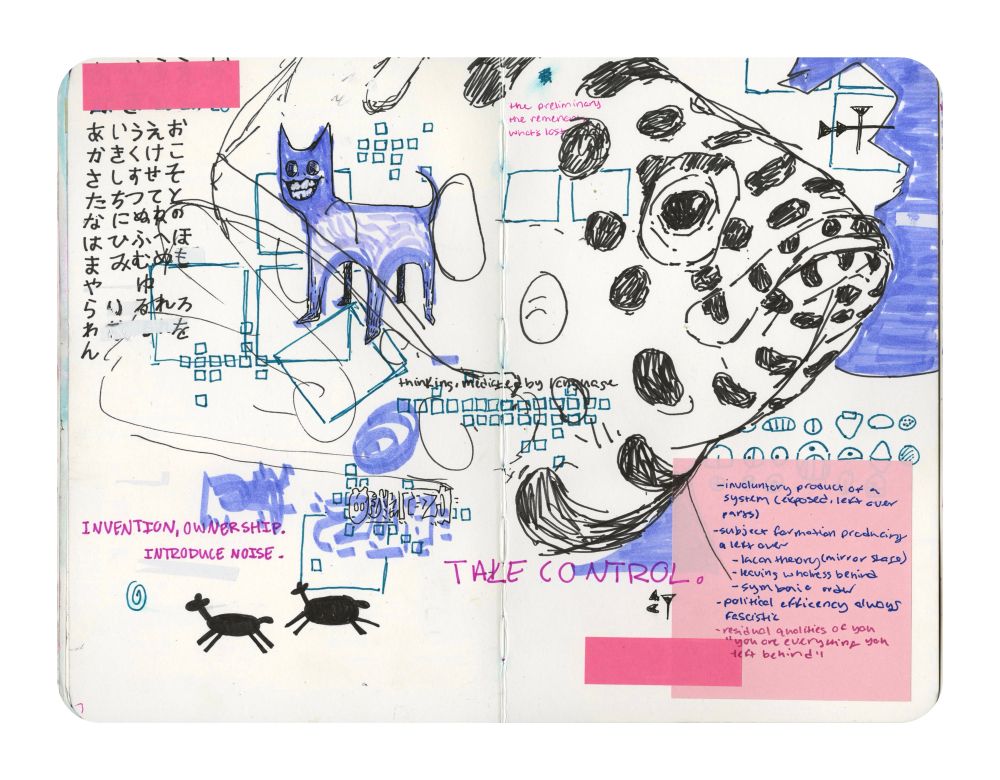 あいうえお
かきくけこ
さしすせそ
たちつてと
なにぬねの
はひふへほ
まみむめも
やゆ
らりるれろ
わを
ん
the preliminary
the
what's lost
thinking, mediated by language
INVENTION, OWNERSHIP.
INTRODUCE NOISE.
TAKE CONTROL.
-involuntary product of a
system (exposed, left over
parts)
-subject formation producing
a left over
-lacan theory (mirror stage)
-leaving wholeness behind
-symbolic order
-political efficency always
fascistic
-residual qualities of you
"you are everything you
left behind"